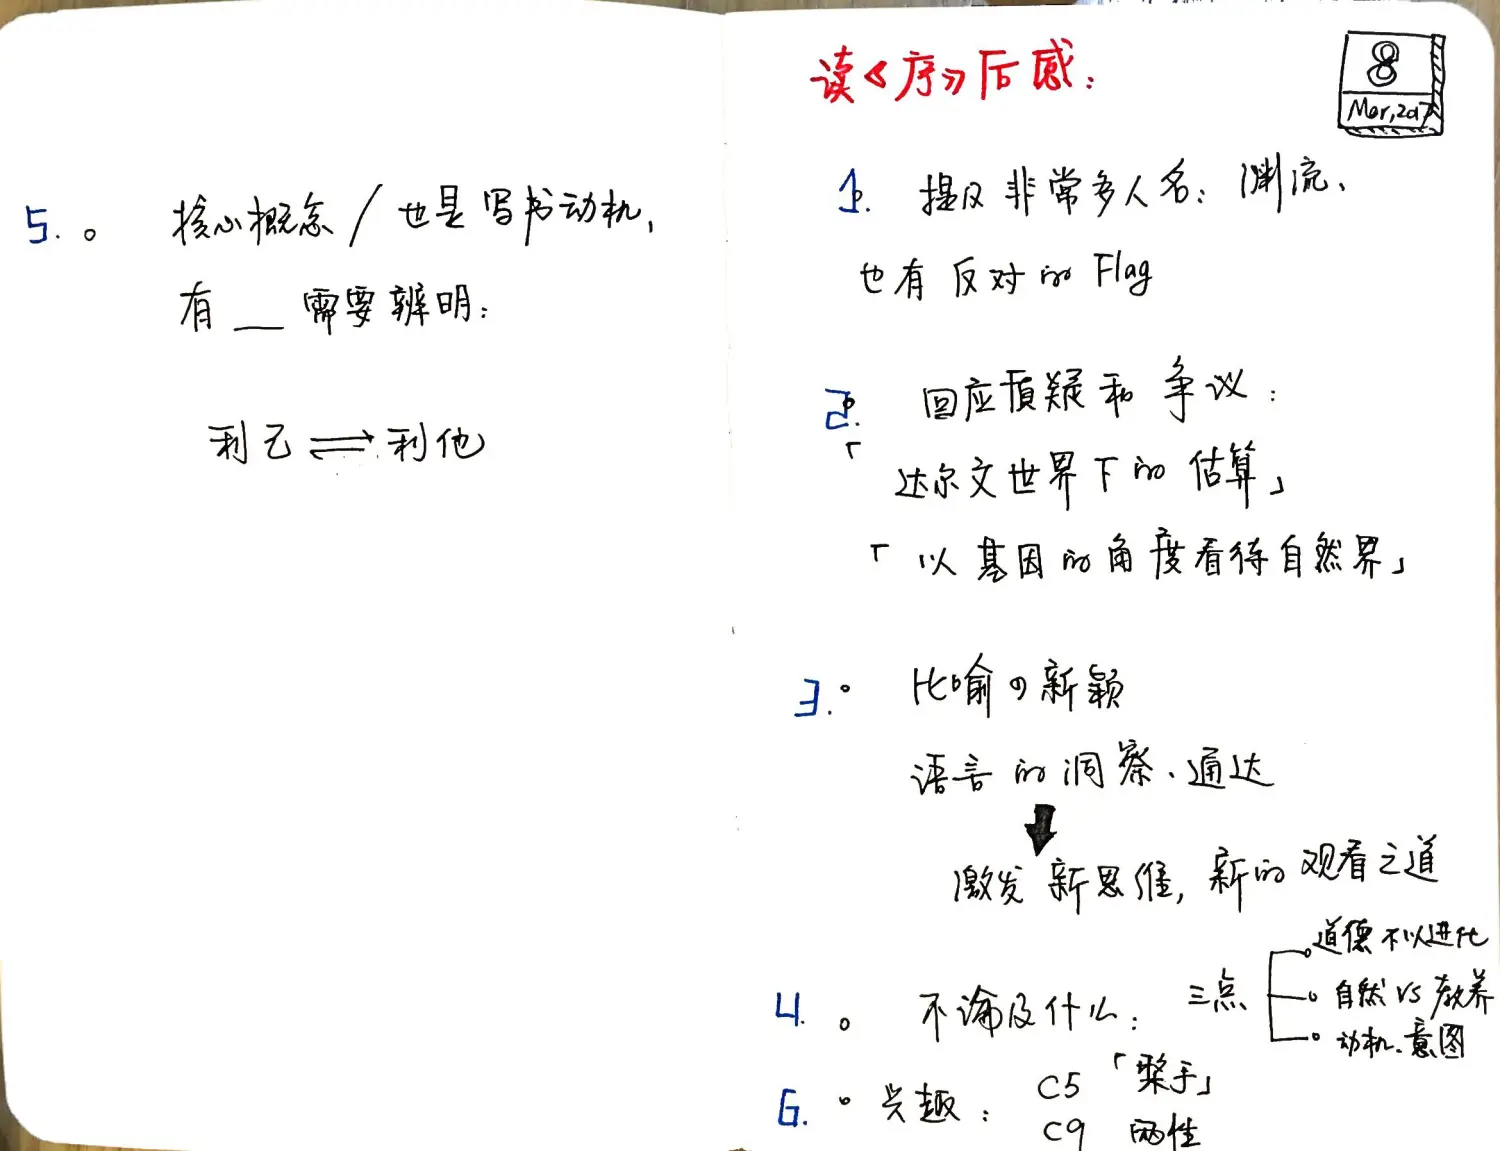 读《序》后感：
8
Mar, 2017
1. 提及非常多人名：渊流、
也有反对的 Flag
2. 回应质疑和争议：
「达尔文世界下的估算」
「以基因的角度看待自然界」
3. 比喻の新颖
语言的洞察、通达
激发新思维，新的观看之道
4. 不论及什么：三点
道德不以进化
自然 VS 教养
动机、意图
6. 兴趣：C5「桨手」
C9 两性
5. 核心概念 / 也是写书动机，
有 __ 需要辨明：
利己 ⇌ 利他